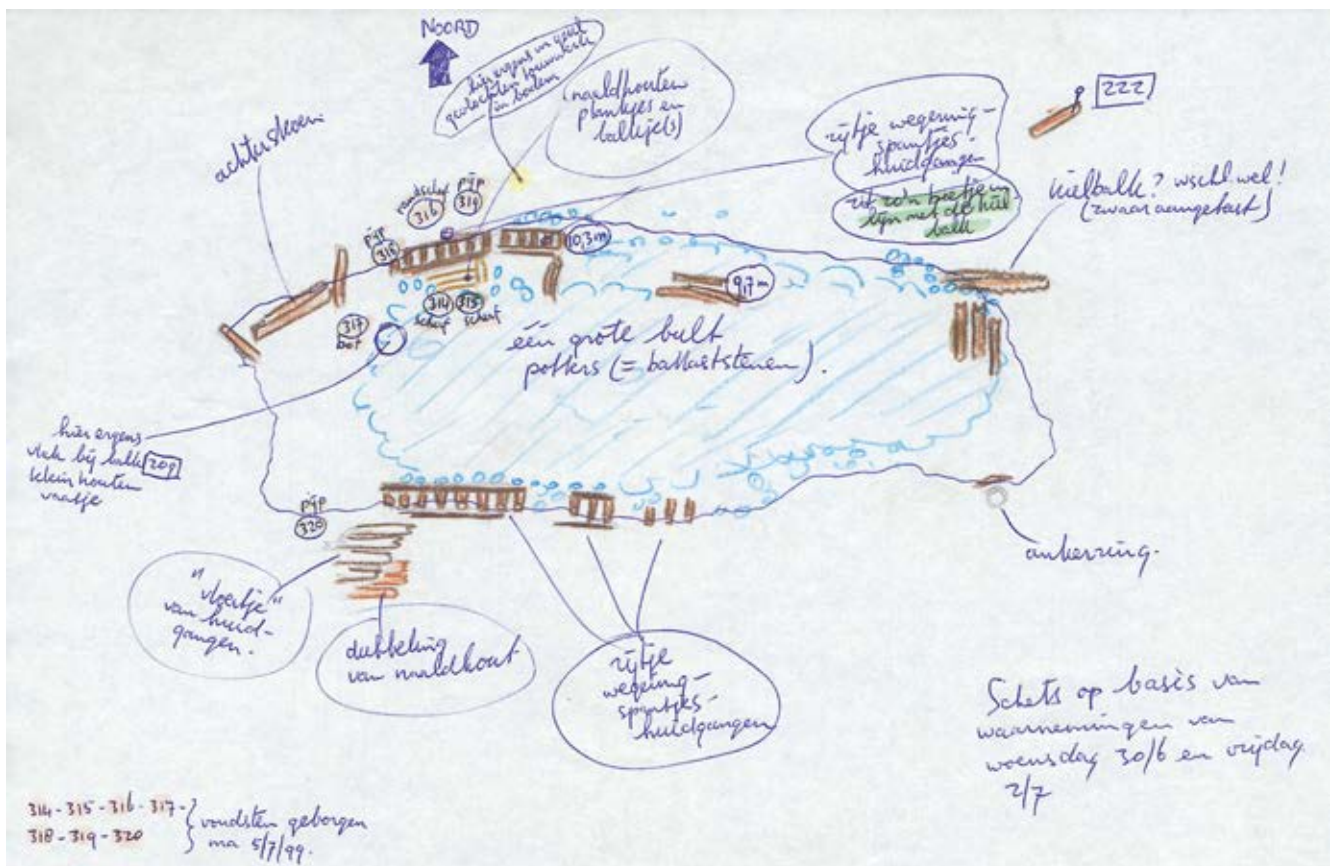 NOORD
hier ergens
in bodem
naaldhouten
plankjes en
balkje(s)
222
achtersteven
rijtje wegering-
spantjes-
huidgangen
zit zo'n beetje in
lijn met de kiel
balk
kielbalk? wschl wel!
(zwaar aangetast)
316
pijp
319
pijp
318
10,3m
9,7m
314
scherf
315
scherf
317
bot
één grote bult
potters (= ballaststenen).
hier ergens
vlak bij balk 209
klein houten
vaatje
pijp
320
ankerring.
"vloertje"
van huid-
gangen.
dubbeling
van naaldhout
rijtje
wegering-
spantjes-
huidgangen
Schets op basis van
waarnemingen van
woensdag 30/6 en vrijdag
2/7
314-315-316-317-
318-319-320
vondsten geborgen
ma 5/7/99.